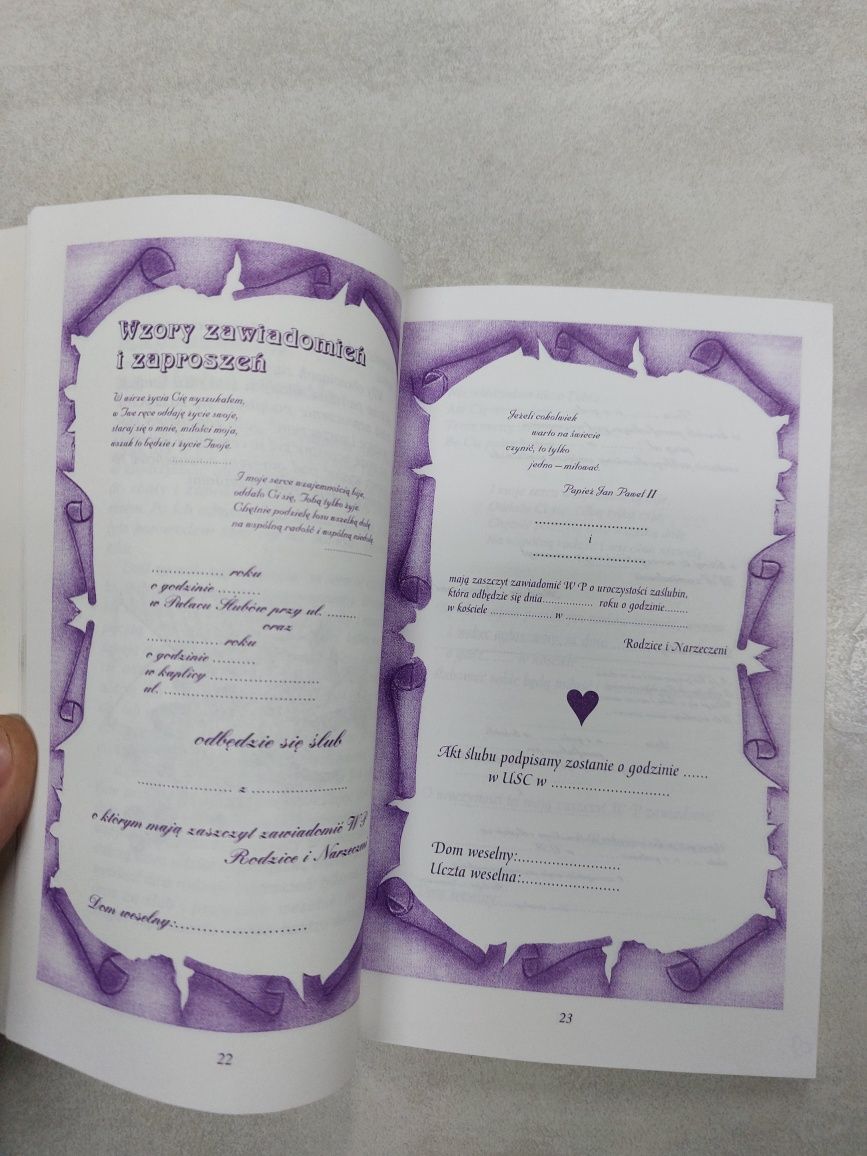 Wzory zawiadomień
i zaproszeń
W wirze życia Cię wyszukałem,
w Twe ręce oddaję życie swoje,
staraj się o mnie, miłości moja,
wszak to będzie i życie Twoje.
....................
I moje serce wzajemnością bije,
oddało Ci się, Tobą tylko żyje.
Chętnie podzielę losu wszelką dolę
na wspólną radość i wspólną niedolę
................
............... roku
o godzinie .........
w Pałacu Ślubów przy ul. .......
oraz
............... roku
o godzinie .........
w kaplicy ......................
ul. ................................
odbędzie się ślub
.................... z ....................
o którym mają zaszczyt zawiadomić WP
Rodzice i Narzeczeni
Dom weselny:.........................
22
Jeżeli cokolwiek
warto na świecie
czynić, to tylko
jedno – miłować.
Papież Jan Paweł II
..............................
i
..............................
mają zaszczyt zawiadomić W P o uroczystości zaślubin,
która odbędzie się dnia............... roku o godzinie.......
w kościele .................. w ....................................
Rodzice i Narzeczeni
Akt ślubu podpisany zostanie o godzinie ......
w USC w .............................
Dom weselny:........................
Uczta weselna:.......................
23